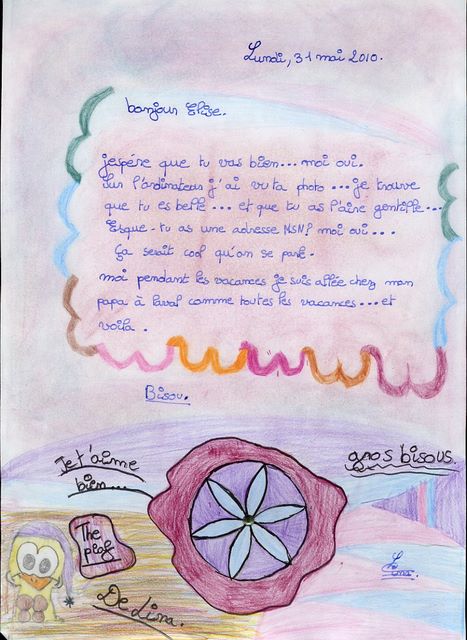 Lundi, 31 mai 2010.
bonjour Elise.
jespére que tu vas bien... moi oui.
Sur l'ordinateur j'ai vu ta photo ... je trouve
que tu es belle ... et que tu as l'aire gentille ...
Esque-tu as une adresse MSN? moi oui...
Ça serait cool qu'on se parle.
moi pendant les vacances je suis allée chez mon
papa à laval comme toutes les vacances ... et
voila.
Bisou.
Je t'aime
bien...
gros bisous.
The
De Lina.